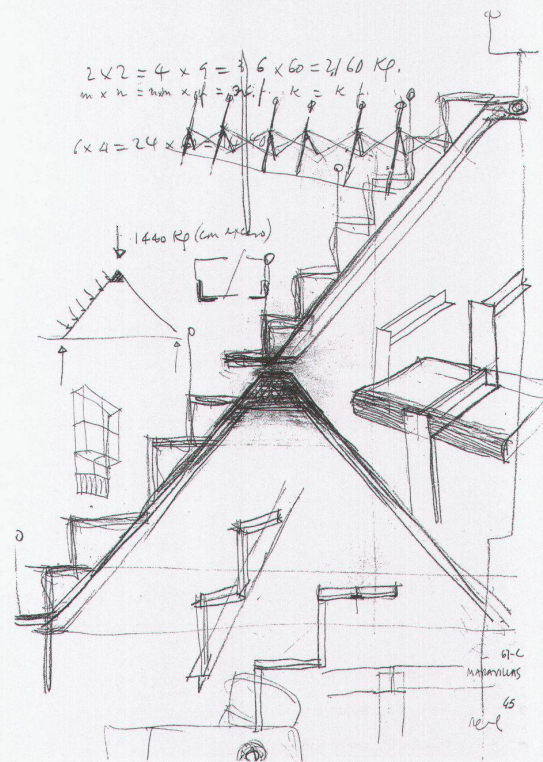 2 x 2 = 4 x 9 = 36 x 60 = 2160 Kp.
m x n =
6 x 4 = 24 x
1440 Kp (con exceso)
67-C
MARAVILLAS
45